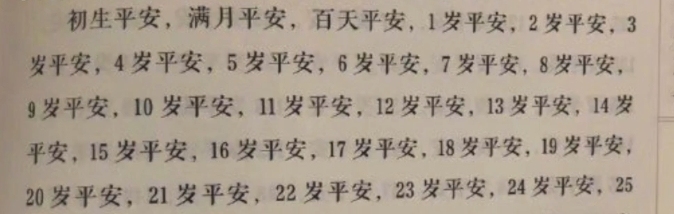 初生平安，满月平安，百天平安，1岁平安，2岁平安，3
岁平安，4岁平安，5岁平安，6岁平安，7岁平安，8岁平安，
9岁平安，10岁平安，11岁平安，12岁平安，13岁平安，14岁
平安，15岁平安，16岁平安，17岁平安，18岁平安，19岁平安，
20岁平安，21岁平安，22岁平安，23岁平安，24岁平安，25